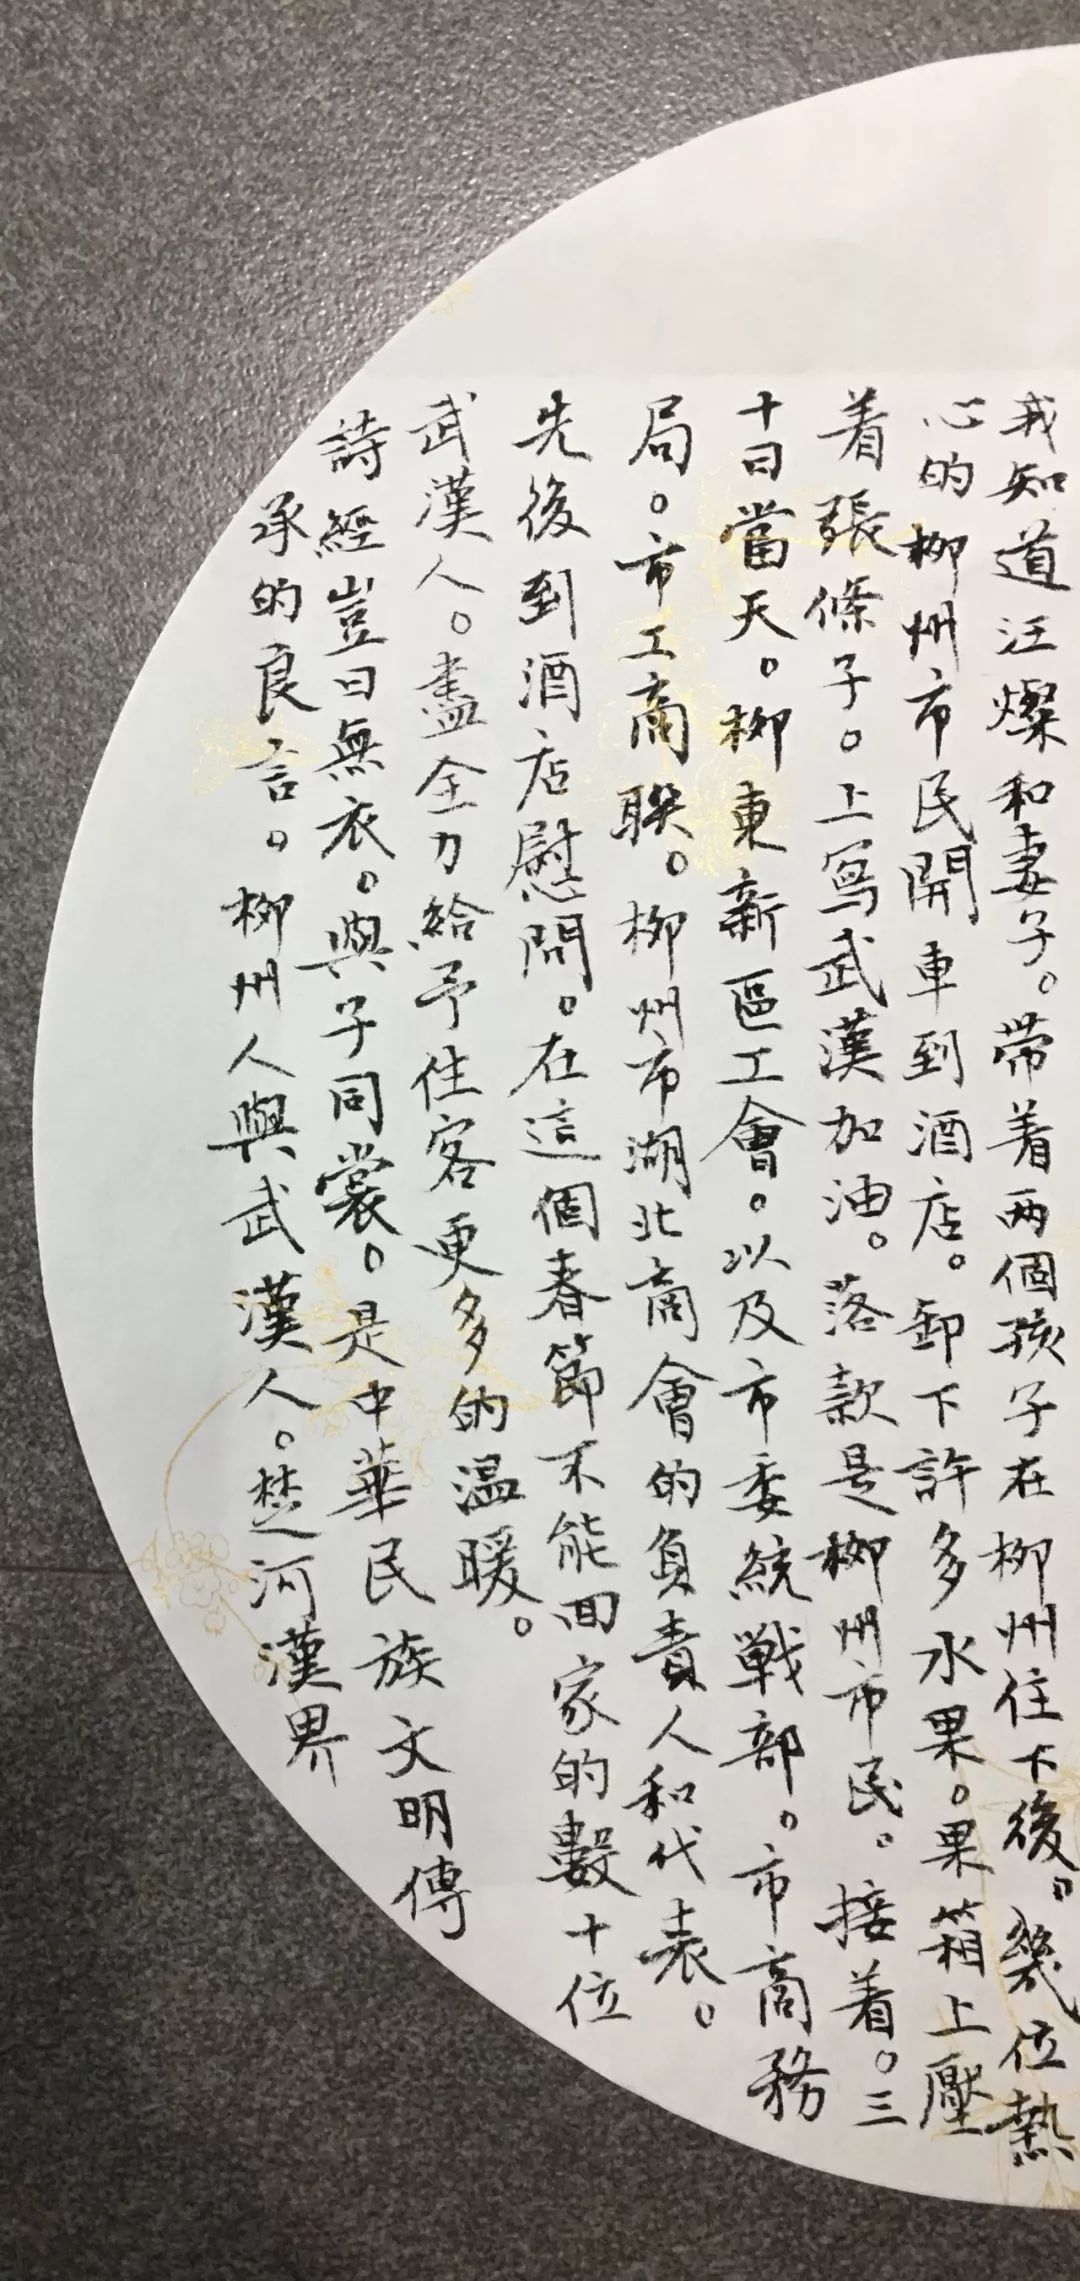 我知道汪燦和妻子。带着两個孩子在柳州住下後。幾位熱
心的柳州市民開車到酒店。卸下許多水果。果箱上壓
着張條子。上寫武漢加油。落款是柳州市民。接着。三
十日當天。柳東新區工會。以及市委統戦部。市商務
局。市工商联。柳州市湖北商會的負責人和代表。
先後到酒店慰問。在這個春節不能回家的數十位
武漢人。盡全力給予住客更多的温暖。
詩經豈曰無衣。與子同裳。是中華民族文明傳
承的良言。柳州人與武漢人。楚河漢界